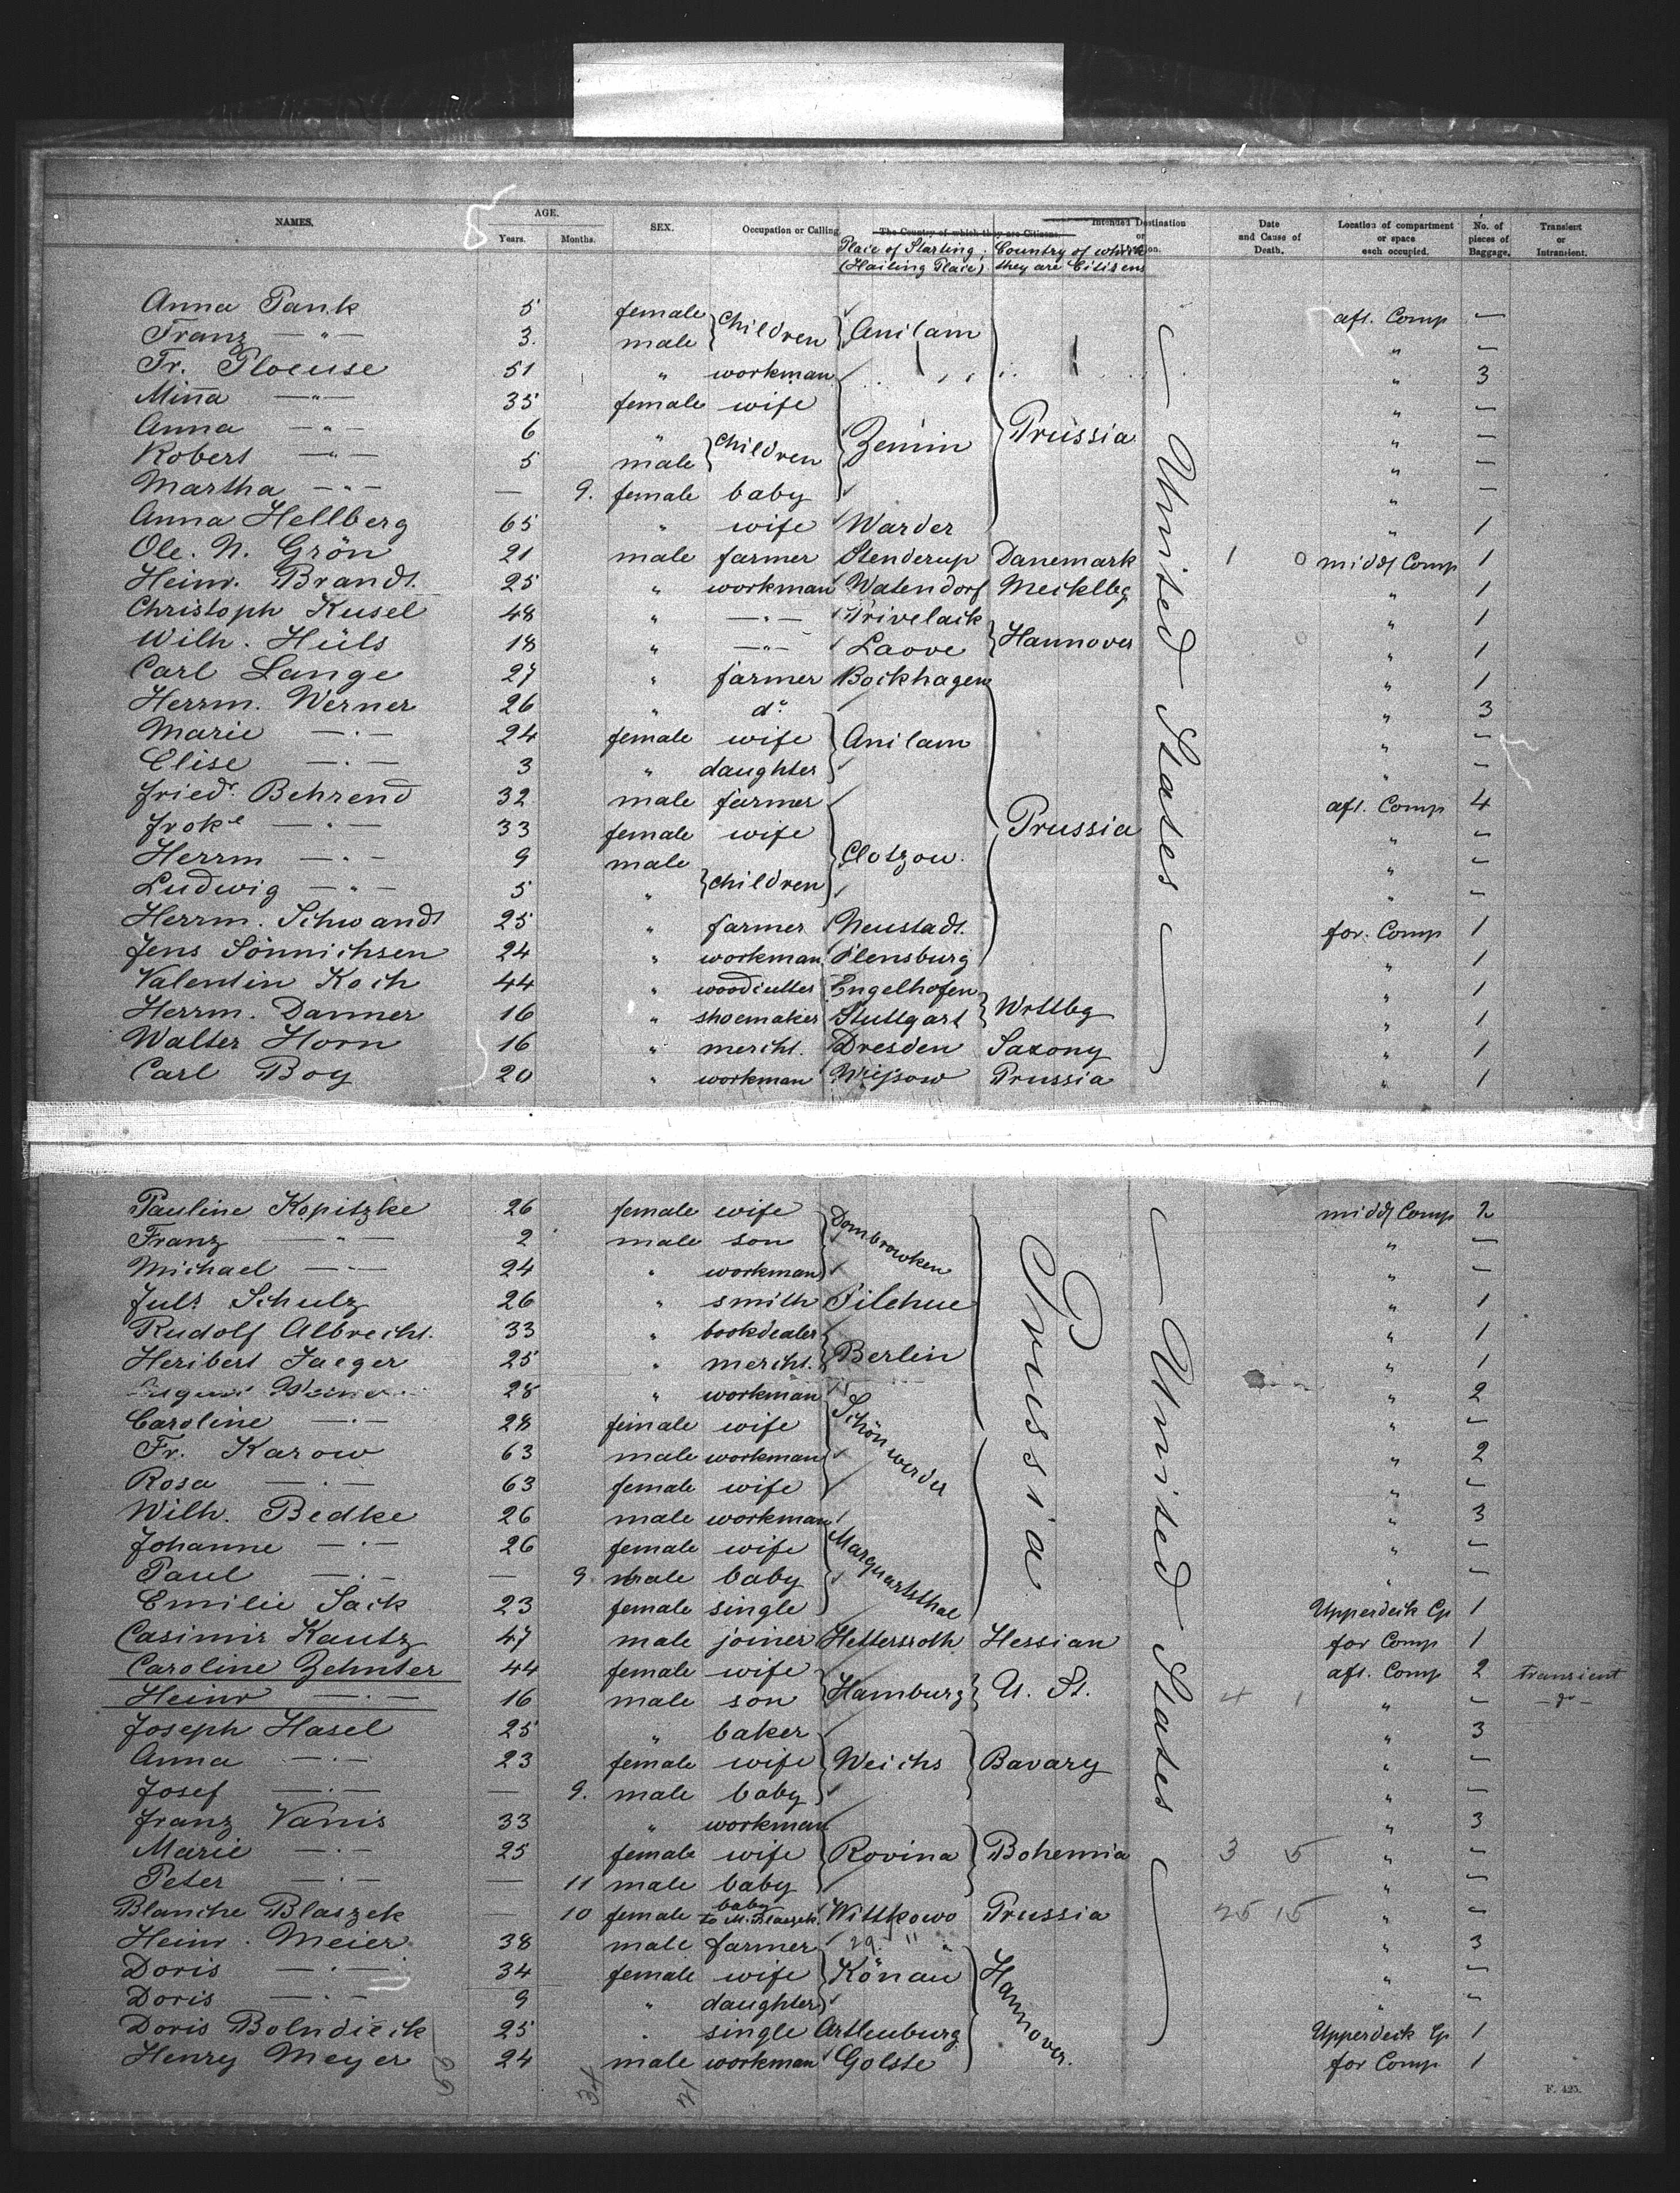 NAMES. AGE. Years. Months. SEX. Occupation or Calling The Country of which they are Citizens. Intended Destination or Date and Cause of Death. Location of compartment or space each occupied. No. of pieces of Baggage. Transient or Intransient.
Place of Starting; (Hailing Place) Country of which they are Citizens
Anna Pank 5 female children Anilam aft. Comp —
Franz —"— 3. male " —
Fr. Ploeuse 51 " workman " 3
Minna —"— 35 female wife " —
Anna —"— 6 " children Zemin Prussia " —
Robert —"— 5 male " —
Martha —"— — 9. female baby " —
Anna Hellberg 65 " wife Warder " 1
Ole. N. Grön 21 male farmer Stenderup Danemark 1 0 middl Comp 1
Heinr. Brandt 25 " workman Watendorf Mecklbg " 1
Christoph Kusel 48 " —"— Privelack " 1
Wilh. Hüls 18 " —"— Laave Hannover 0 " 1
Carl Lange 27 " farmer Bockhagen " 1
Herrm. Werner 26 " do " 3
Marie —"— 24 female wife Anilam " —
Elise —"— 3 " daughter " —
Friedr. Behrend 32 male farmer aft. Comp 4
Frdke —"— 33 female wife Prussia " —
Herrm —"— 9 male Clotzow. " —
Ludwig —"— 5 " children " —
Herrm. Schwandt 25 " farmer Neustadt. for. Comp 1
Jens Sönnichsen 24 " workman Flensburg " 1
Valentin Koch 44 " woodcutter Engelhofen " 1
Herrm. Danner 16 " shoemaker Stuttgart Wrttbg " 1
Walter Horn 16 " mercht. Dresden Saxony " 1
Carl Boy 20 " workman Prussia " 1
— United States —
Pauline Kopitzke 26 female wife Dombrowken middl Comp 2
Franz —"— 2 male son " —
Michael —"— 24 " workman " —
Juls Schulz 26 " smith Filehne " 1
Rudolf Albrecht. 33 " bookdealer " 1
Heribert Jaeger 25 " mercht. Berlin " 1
28 " workman " 2
Caroline —"— 28 female wife Schönwerder " —
Fr. Karow 63 male workman " 2
Rosa —"— 63 female wife " —
Wilh. Bedke 26 male workman " 3
Johanne —"— 26 female wife Marquartsthal " —
Paul —"— — 9. male baby " —
Emilie Sack 23 female single Upperdeck Cp 1
Prussia
Casimir Kautz 47 male joiner Hettersroth Hessian for Comp 1
Caroline Zehnter 44 female wife Hamburg U. St. aft. Comp 2 transient
Heinr —"— 16 male son 4 1 " — —do—
Joseph Hasel 25 " baker " 3
Anna —"— 23 female wife Weichs Bavary " —
Josef —"— — 9. male baby " —
Franz Vanis 33 " workman " 3
Marie —"— 25 female wife Rovina Bohemia 3 5 " —
Peter —"— — 11 male baby " —
Blanche Blaszek — 10 female baby to M. Blaszek. Wittkowo Prussia 25 15 " —
Heinr. Meier 38 male farmer 29. " " " 3
Doris —"— 34 female wife Könau Hannover. " —
Doris —"— 9 " daughter " —
Doris Bolndieck 25 " single Artlenburg Upperdeck Cp 1
Henry Meyer 24 male workman Golste for Comp 1
— United States —
34 21
F. 425.